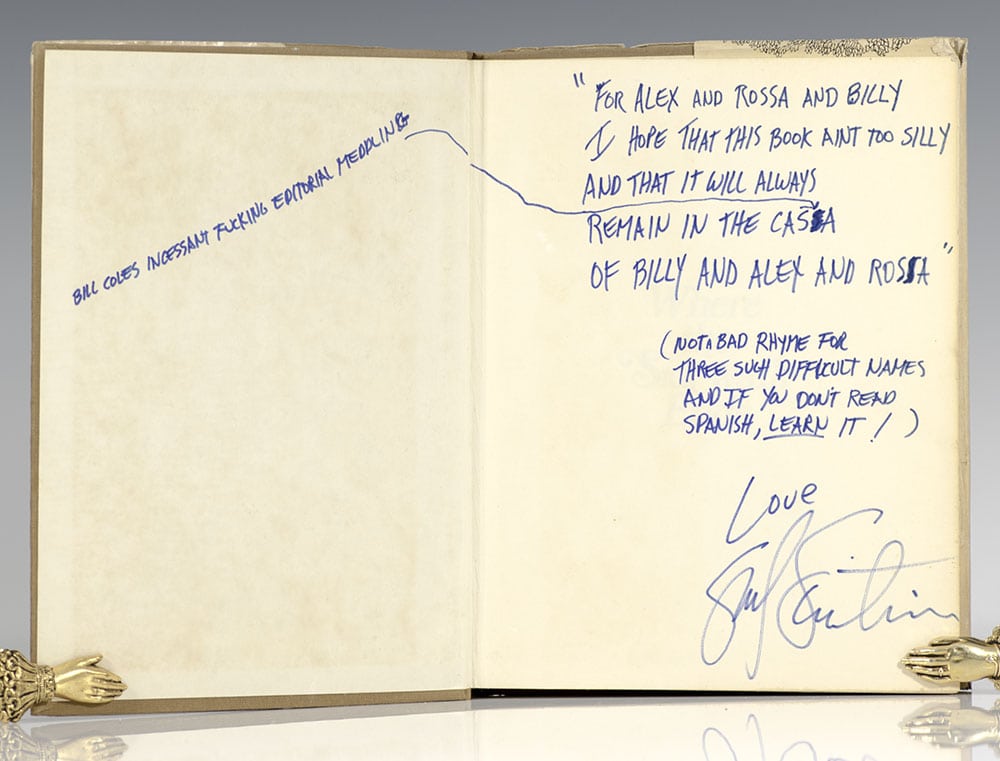 BILL COLES INCESSANT FUCKING EDITORIAL MEDDLING
"FOR ALEX AND ROSSA AND BILLY
I HOPE THAT THIS BOOK AINT TOO SILLY
AND THAT IT WILL ALWAYS
REMAIN IN THE CASSA
OF BILLY AND ALEX AND ROSSA"
(NOT A BAD RHYME FOR
THREE SUCH DIFFICULT NAMES
AND IF YOU DON'T READ
SPANISH, LEARN IT! )
Love
Shel Silverstein
Where